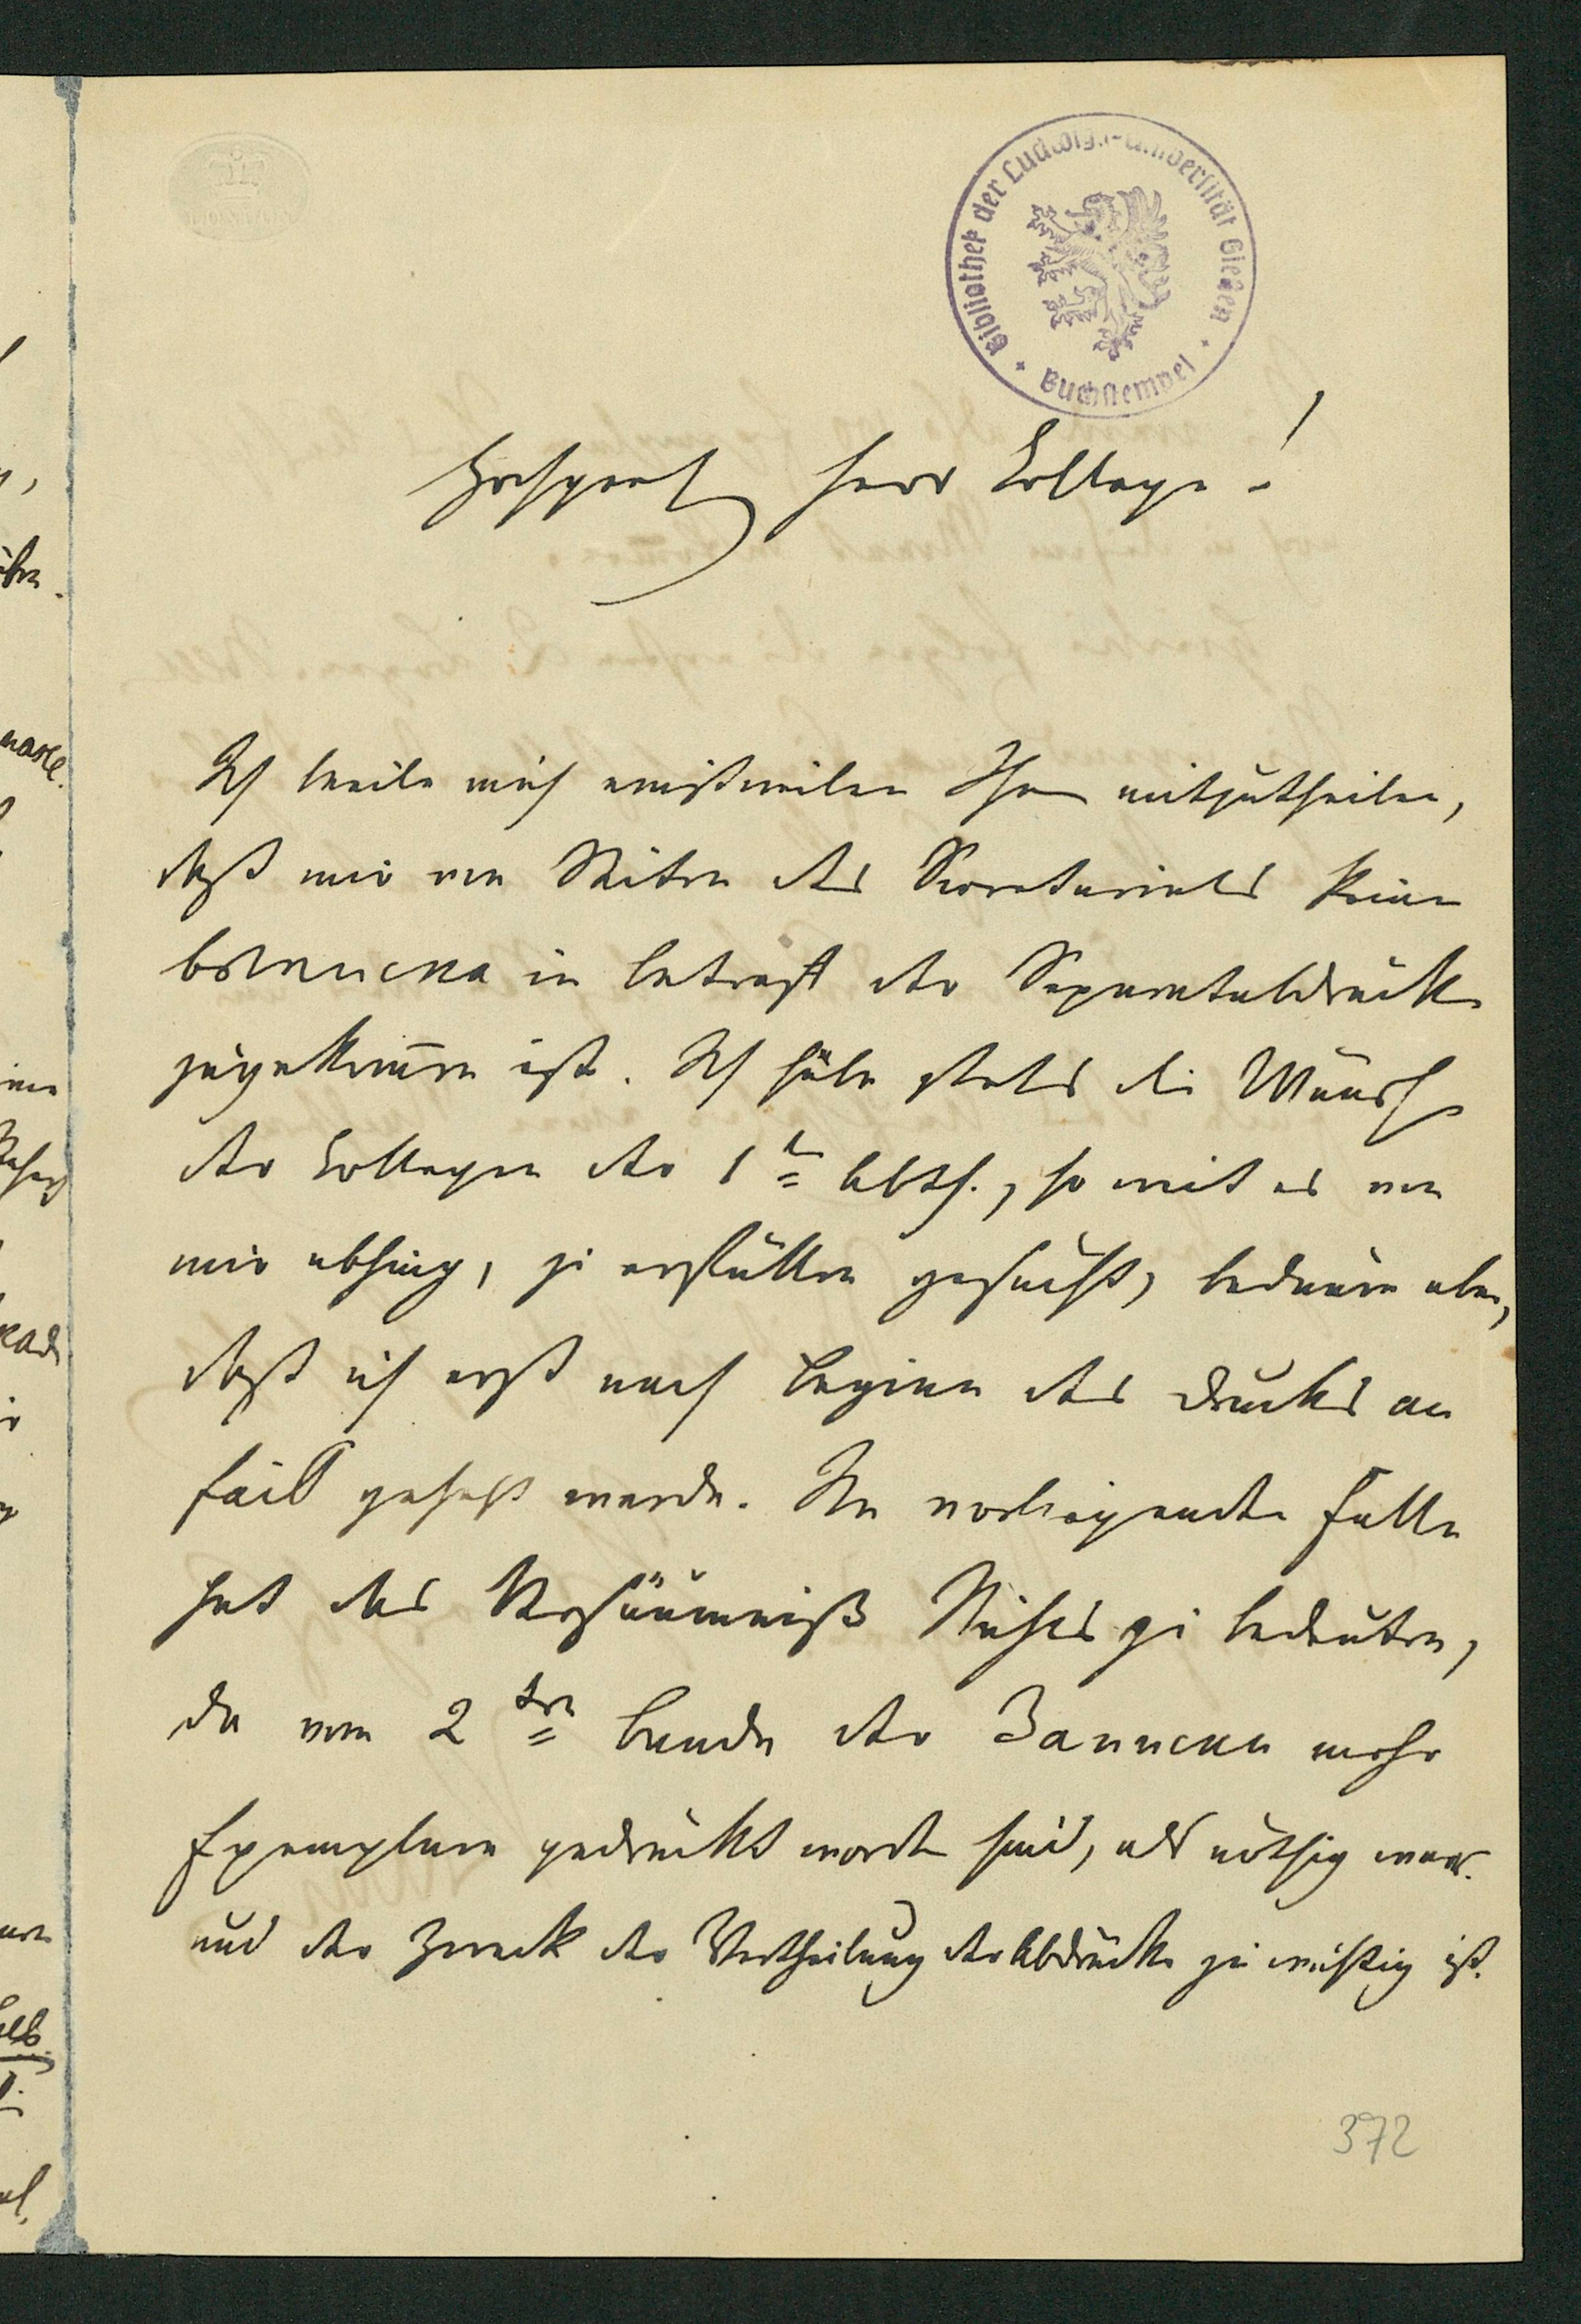 Bibliothek der Ludwigs-Universität Gießen
Buchstempel
Hochgeehrt Herr College!
Ich beeile mich einstweilen Ihnen mitzutheilen,
daß mir von Seiten des Secretariats keine
выписка in betreff der Separatabdrücke
zugekom̅en ist. Ich habe stets die Wünsche
der Collegen der 1 ten Abth., so weit es von
mir abhing, zu erfüllen gesucht, bedaure aber,
daß ich erst nach Beginn des Drucks au
fait gesetzt werde. Im vorliegenden Falle
hat das Versäumniß Nichts zu bedeuten,
da vom 2 ten Bande der Записки mehr
Exemplare gedruckt worden sind, als nöthig war.
und der Zweck der Vertheilung der Abdrücke zu wichtig ist.
372